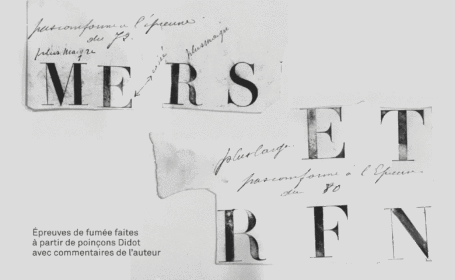 pas conforme à l'épreuve
du 72.
plus maigre
plus maigre
MERS
ET
plus large
pas conforme à l'Epreuve
du 80
RFN
Épreuves de fumée faites
à partir de poinçons Didot
avec commentaires de l'auteur